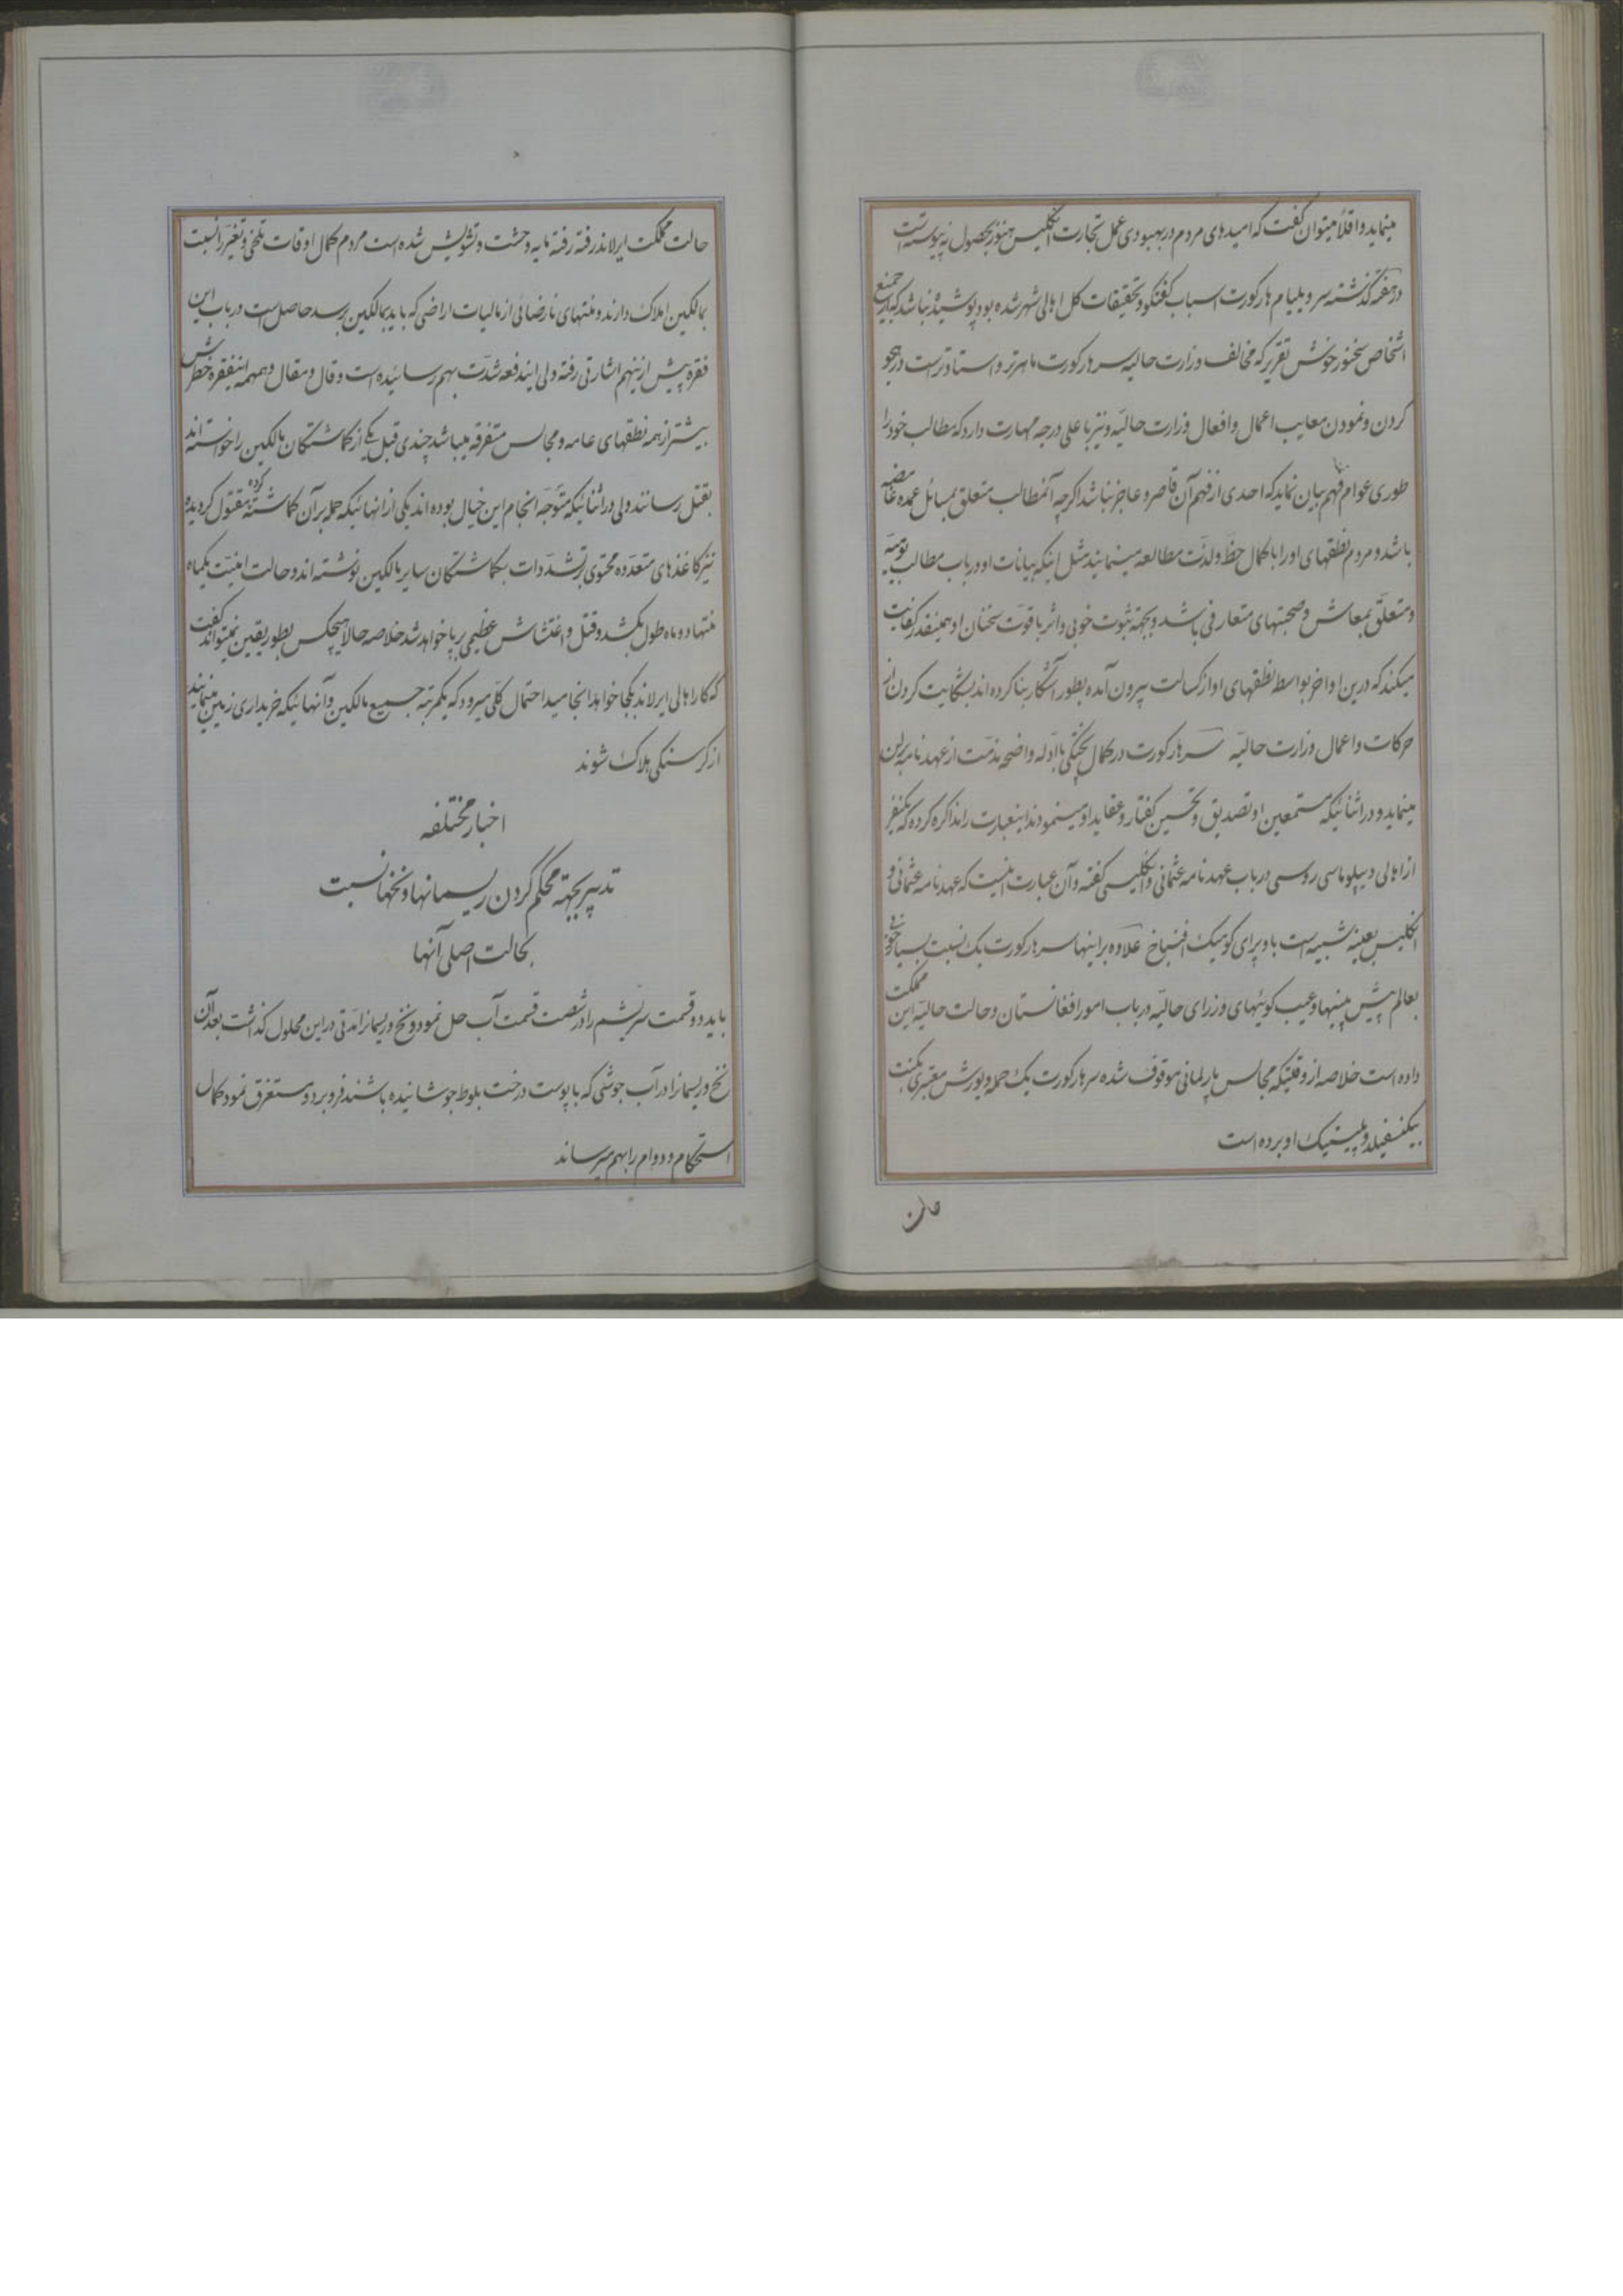 مینماید و اقلاً میتوان گفت که امیدهای مردم در بهبودی عمل تجارت انگلیس هنوز بحصول نه پیوسته است
در هفته گذشته سر ویلیام هارکورت اسباب گفتگو و تحقیقات کل اهالی شهر شده بود پوشیده نباشد که از جمیع
اشخاص سخنور خوش تقریر که مخالف وزارت حالیه سر هارکورت ماهرتر و استادتر است در هجو
کردن و نمودن معایب اعمال و افعال وزارت حالیه و نیز باعلی درجه مهارت دارد که مطالب خود را
طوری عوام فهم بیان نماید که احدی از فهم آن قاصر و عاجز نباشد اگرچه آنمطالب متعلق بمسائل عمده غامضه
باشد و مردم نطقهای او را با کمال حظ و لذت مطالعه مینمایند مثل اینکه بیانات او در باب مطالب یومیه
و متعلق بمعاش و صحبتهای متعارفی باشد و بجهة ثبوت خوبی و اثر با قوت سخنان او همینقدر کفایت
میکند که درین اواخر بواسطه نطقهای او از کسالت بیرون آمده بطور آشکار بنا کرده اند بشکایت کردن از
حرکات و اعمال وزارت حالیه سر هارکورت در کمال پختگی با ادله واضحه مذمت از عهدنامه برلن
مینماید و در اثنائیکه مستمعین او تصدیق و تحسین گفتار و عقاید او مینمودند اینعبارت را مذاکره کرده که یکنفر
از اهالی دیپلوماسی روسی در باب عهدنامه عثمانی و انگلیسی گفته و آن عبارت اینست که عهدنامه عثمانی و
انگلیس بعینه شبیه است باوپرای کومیک افنباخ علاوه بر اینها سر هارکورت یک نسبت بسیار خوبی
بعالم پیش بینیها و عیب گوئیهای وزرای حالیه در باب امور افغانستان و حالت حالیه این مملکت
داده است خلاصه از وقتیکه مجالس پارلمانی موقوف شده سر هارکورت یک حمله و یورش معتبری بکنت
بیکنسفیلد و پلیتیک او برده است
حالت
حالت مملکت ایرلاند رفته رفته مایه وحشت و تشویش شده است مردم کمال اوقات تلخی و تغیر را نسبت
بمالکین املاک دارند و منتهای نارضائی از مالیات اراضی که باید بمالکین برسد حاصل است در باب این
فقره پیش ازینهم اشارتی رفته ولی ایندفعه شدت بهم رسانیده است و قال و مقال و همهمه اینفقره خطرش
بیشتر از همه نطقهای عامه و مجالس متفرقه میباشد چندی قبل یکی از گماشتگان مالکین را خواسته اند
بقتل رسانند ولی در اثنائیکه متوجه انجام این خیال بوده اند یکی از آنهائیکه حمله بر آن گماشته کرده مقتول گردیده
نیز کاغذهای متعدده محتوی بر تشددات بگماشتگان سایر مالکین نوشته اند و حالت امنیت یکماه
منتها دو ماه طول بکشد و قتل و اغتشاش عظیمی برپا خواهد شد خلاصه حالا هیچکس بطور یقین نمیتواند گفت
که کار اهالی ایرلاند بکجا خواهد انجامید احتمال کلی میرود که یکمرتبه جمیع مالکین و آنهائیکه خریداری زمین مینمایند
از گرسنگی هلاک شوند
اخبار مختلفه
تدبیر بجهة محکم کردن ریسمانها و نخها نسبت
بحالت اصلی آنها
باید دو قسمت سریشم را در شصت قسمت آب حل نمود و نخ و ریسمانرا مدتی در این محلول گذاشت بعد از آن
نخ و ریسمانرا در آب جوشی که با پوست درخت بلوط جوشانیده باشند فرو برد و مستغرق نمود کمال
استحکام و دوام را بهم میرساند